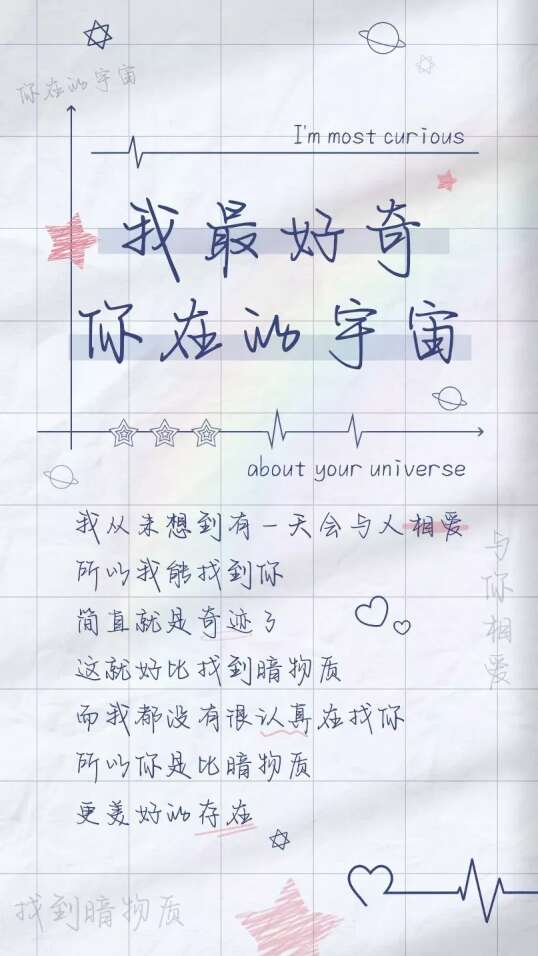 你在的宇宙
I'm most curious
我最好奇
你在的宇宙
about your universe
我从未想到有一天会与人相爱
所以我能找到你
简直就是奇迹了
这就好比找到暗物质
而我都没有很认真在找你
所以你是比暗物质
更美好的存在
与你相爱
找到暗物质